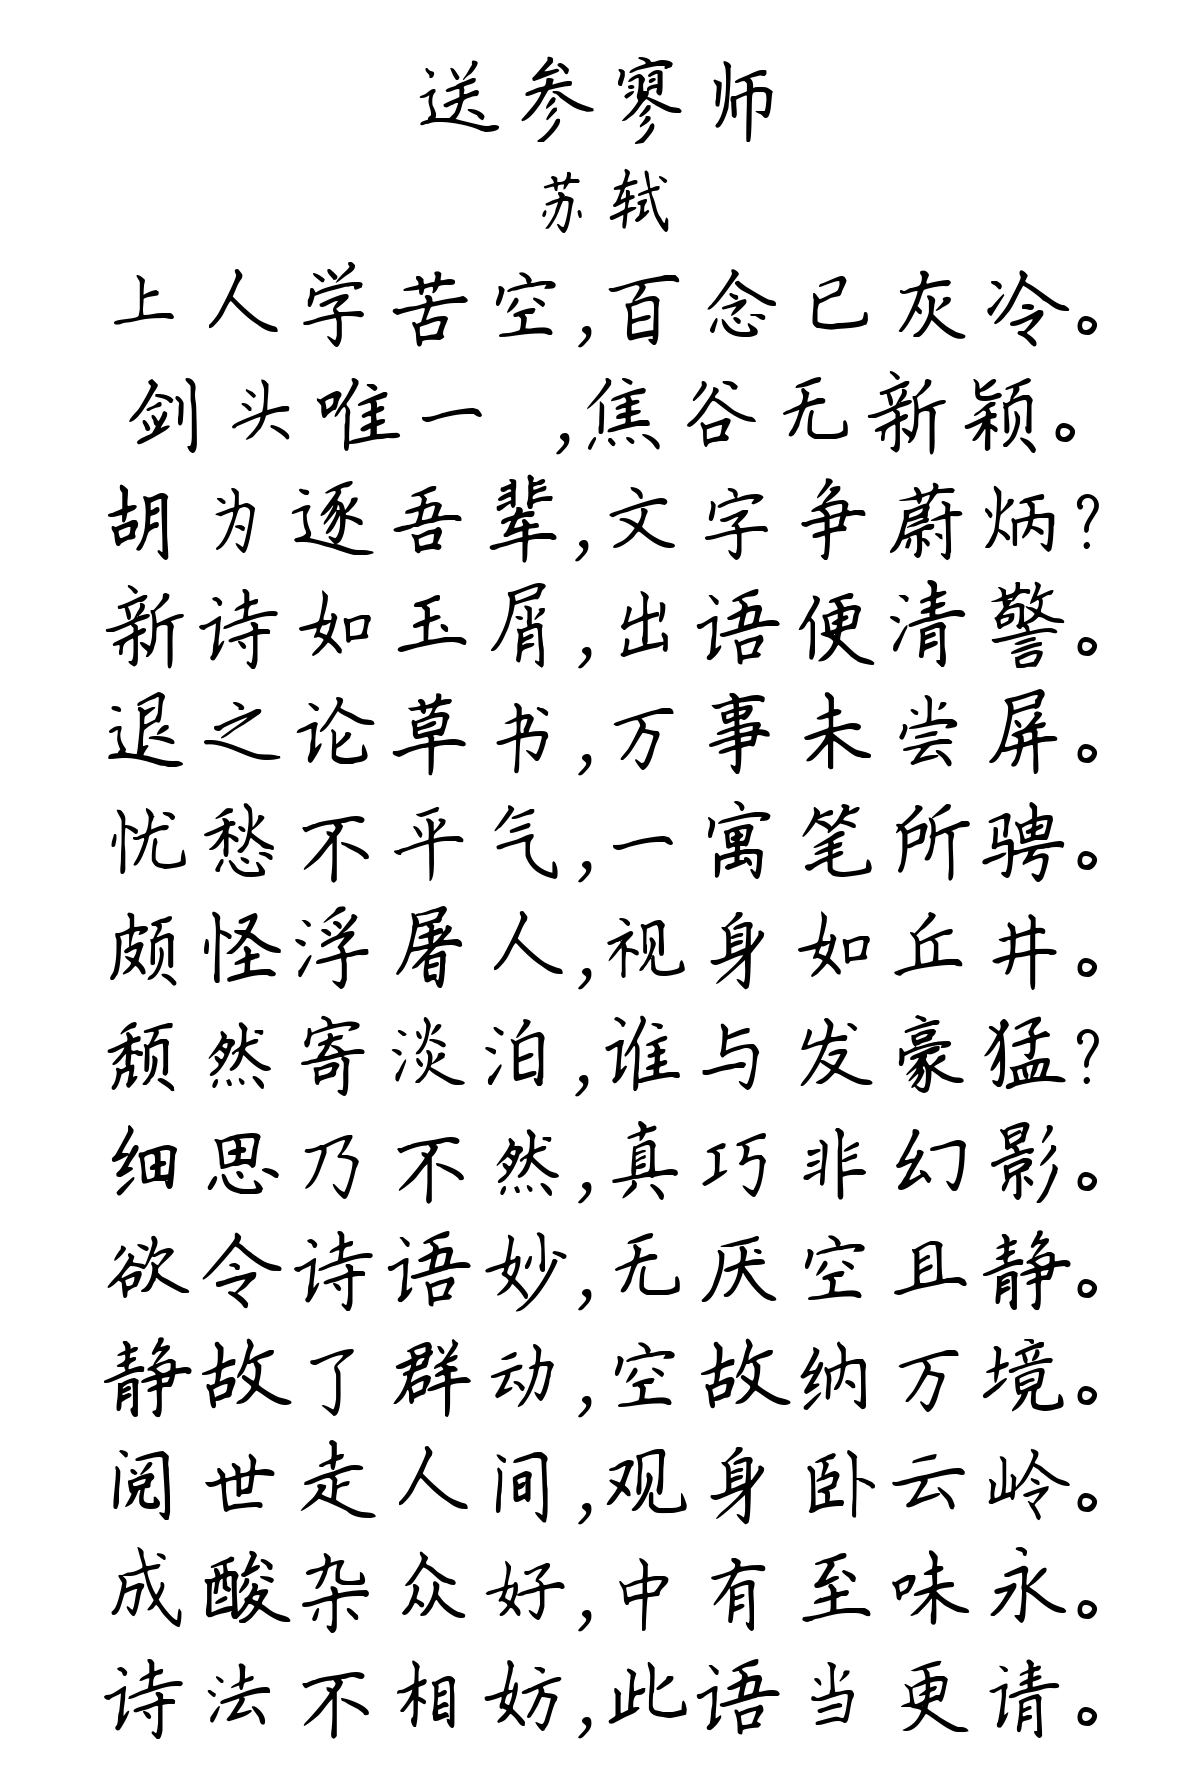 送参寥师
苏轼
上人学苦空,百念已灰冷。
剑头唯一 ,焦谷无新颖。
胡为逐吾辈,文字争蔚炳?
新诗如玉屑,出语便清警。
退之论草书,万事未尝屏。
忧愁不平气,一寓笔所骋。
颇怪浮屠人,视身如丘井。
颓然寄淡泊,谁与发豪猛?
细思乃不然,真巧非幻影。
欲令诗语妙,无厌空且静。
静故了群动,空故纳万境。
阅世走人间,观身卧云岭。
成酸杂众好,中有至味永。
诗法不相妨,此语当更请。